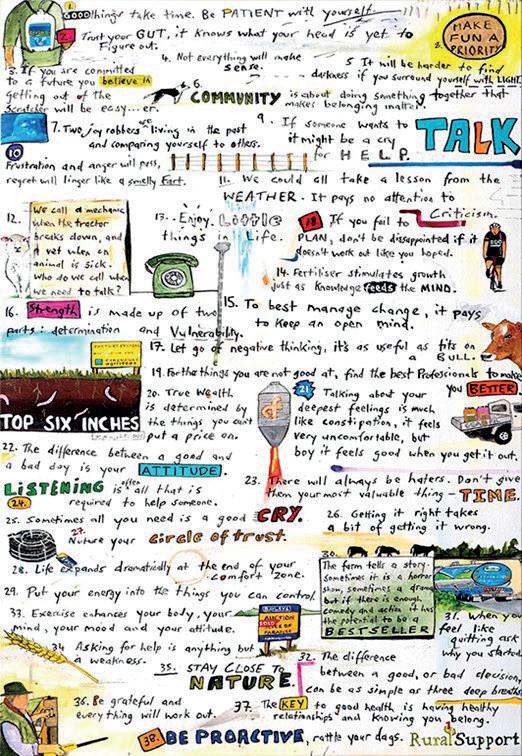 1. GOOD things take time. Be PATIENT with yourself.
2. Trust your GUT, it knows what your head is yet to
Figure out.
MAKE
FUN A
PRIORITY
3.
4. Not everything will make
sense.
5 It will be harder to find
darkness if you surround yourself with LIGHT.
3. If you are committed
to a future you believe in
getting out of the
scratcher will be easy...er.
6.
COMMUNITY is about doing something together that
makes belonging matter.
7. Two joy robbers are living in the past
and comparing yourself to others.
9. If someone wants to TALK
it might be a cry
for HELP.
10
Frustration and anger will pass,
regret will linger like a smelly fart.
11. We could all take a lesson from the
WEATHER. It pays no attention to
Criticism.
12. We call a mechanic
when the tractor
breaks down, and
a vet when an
animal is sick.
who do we call when
we need to talk?
13. Enjoy Little
things in Life.
18 If you fail to
PLAN, don't be disappointed if it
doesn't work out like you hoped.
14. Fertiliser stimulates growth
just as knowledge feeds the MIND.
15. To best manage change, it pays
to keep an open mind.
16. Strength is made up of two
parts: determination and Vulnerability.
17. Let go of negative thinking, it's as useful as tits on
a BULL.
19. For the things you are not good at, find the best Professionals to make
you BETTER
TOP SIX INCHES
20. True Wealth
is determined by
the things you can't
put a price on.
21. Talking about your
deepest feelings is much
like constipation, it feels
very uncomfortable, but
boy it feels good when you get it out.
22. The difference between a good and
a bad day is your ATTITUDE.
23. There will always be haters. Don't give
them your most valuable thing - TIME.
24. LISTENING is often all that is
required to help someone.
25. Sometimes all you need is a good CRY.
26. Getting it right takes
a bit of getting it wrong.
27. Nuture your circle of trust.
28. Life expands dramatically at the end of your
comfort zone.
29. Put your energy into the things you can control.
30. The farm tells a story.
sometimes it is a horror
show, sometimes a drama
but if there is enough
comedy and action it has
the potential to be a
BESTSELLER
31. When you
feel like
quitting ask
why you started.
33. Exercise enhances your body, your
mind, your mood and your attitude.
SOLD
34 Asking for help is anything but
a weakness.
32. The difference
between a good, or bad decision,
can be as simple as three deep breaths
35. STAY CLOSE TO
NATURE.
36. Be grateful and
everything will work out.
37. The KEY to good health is having healthy
relationships and knowing you belong.
38. BE PROACTIVE, rattle your dags.
Rural Support